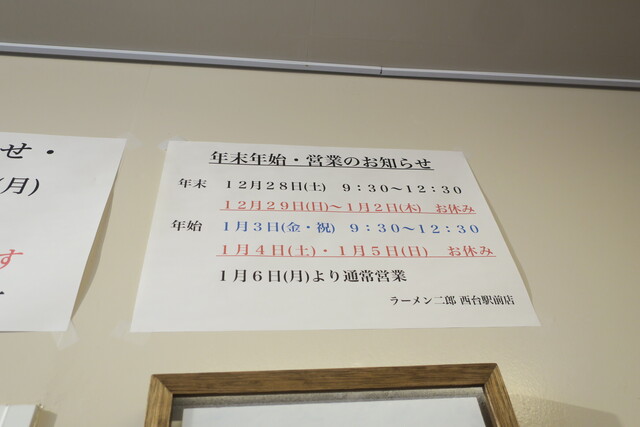 せ・
(月)
す
年末年始・営業のお知らせ
年末 12月28日(土) 9:30〜12:30
12月29日(日)〜1月2日(木) お休み
年始 1月3日(金・祝) 9:30〜12:30
1月4日(土)・1月5日(日) お休み
1月6日(月)より通常営業
ラーメン二郎 西台駅前店